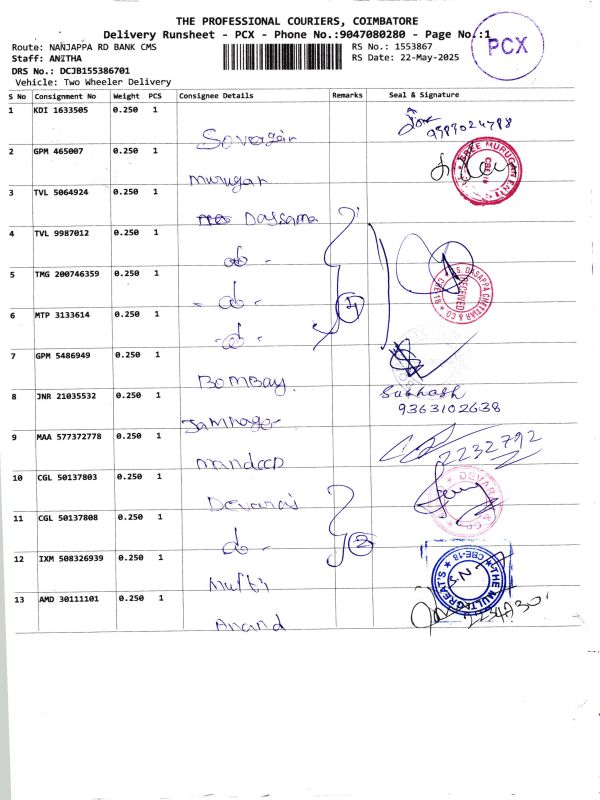 THE PROFESSIONAL COURIERS, COIMBATORE
Delivery Runsheet - PCX - Phone No.:9047080280 - Page No.:1
PCX
Route: NANJAPPA RD BANK CMS
RS No.: 1553867
Staff: ANITHA
RS Date: 22-May-2025
DRS No.: DCJB155386701
Vehicle: Two Wheeler Delivery
S No Consignment No Weight PCS Consignee Details Remarks Seal & Signature
1 KDI 1633505 0.250 1
9387024788
2 GPM 465007 0.250 1 Murugan
SREE MURUGAN ENT
CBE-18
3 TVL 5064924 0.250 1 Dassama
4 TVL 9987012 0.250 1 do -
5 TMG 200746359 0.250 1 - do - 4
S. DASAPPA CHETTIAR & CO
RECEIVED
CBE-18
6 MTP 3133614 0.250 1 - do -
7 GPM 5486949 0.250 1 Bombay
8 JNR 21035532 0.250 1 Jamnagar Subhash
9363102638
9 MAA 577372778 0.250 1 mandeep 2232792
10 CGL 50137803 0.250 1 Devaraj
DEVARA
11 CGL 50137808 0.250 1 do - 2
12 IXM 508326939 0.250 1 Multi
THE MULTIGREAT'S
CBE-18
13 AMD 30111101 0.250 1 Anand